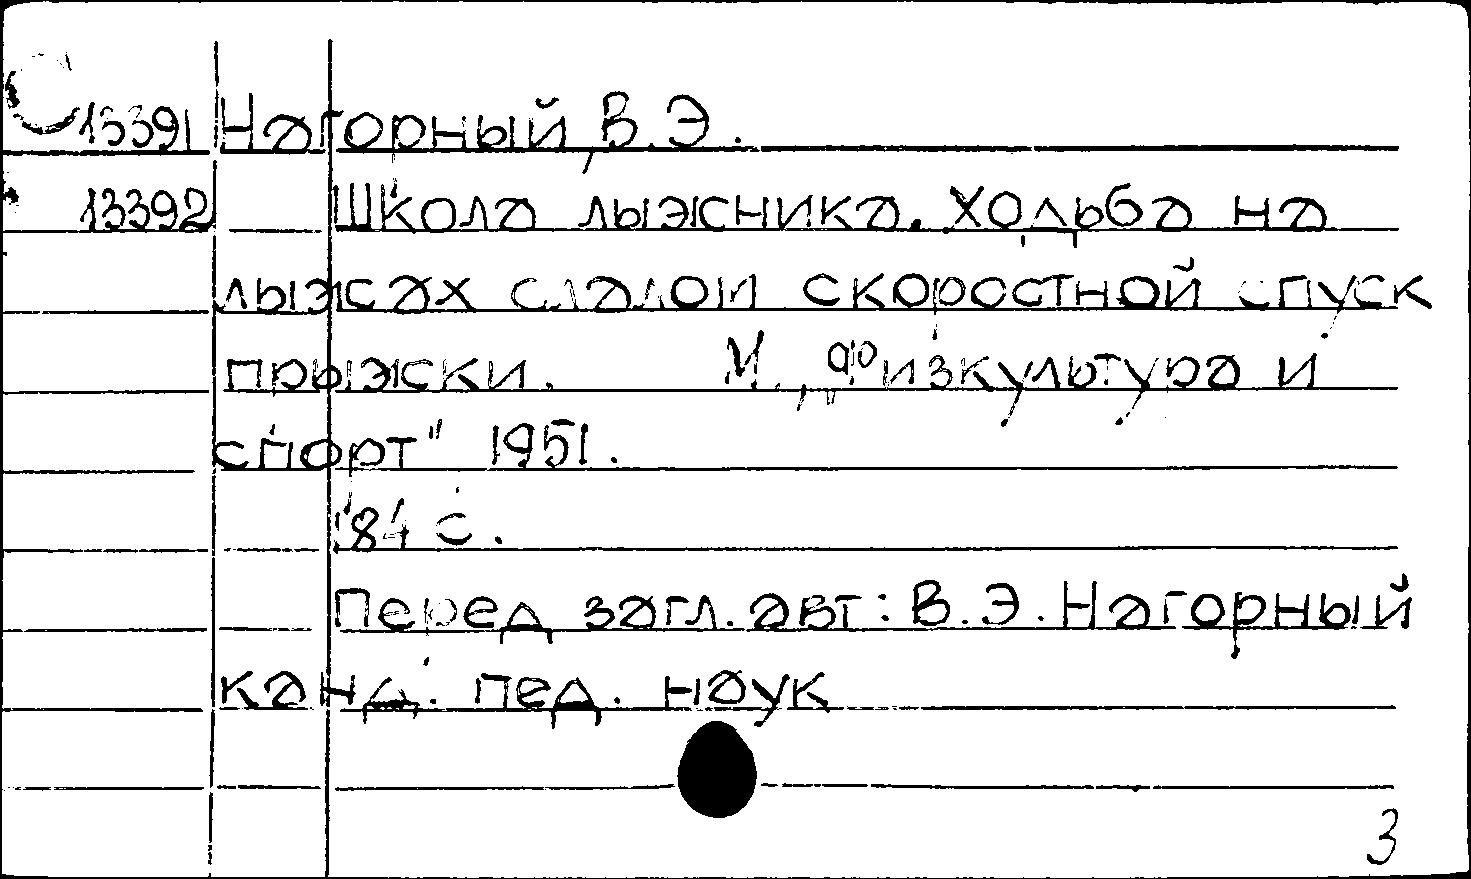 13391 Нагорный, В.Э.
13392 Школа лыжника. Ходьба на
лыжах слалом скоростной спуск
прыжки. М., „Физкультура и
спорт" 1951.
84 с.
Перед загл. авт: В.Э. Нагорный
канд. пед. наук
3